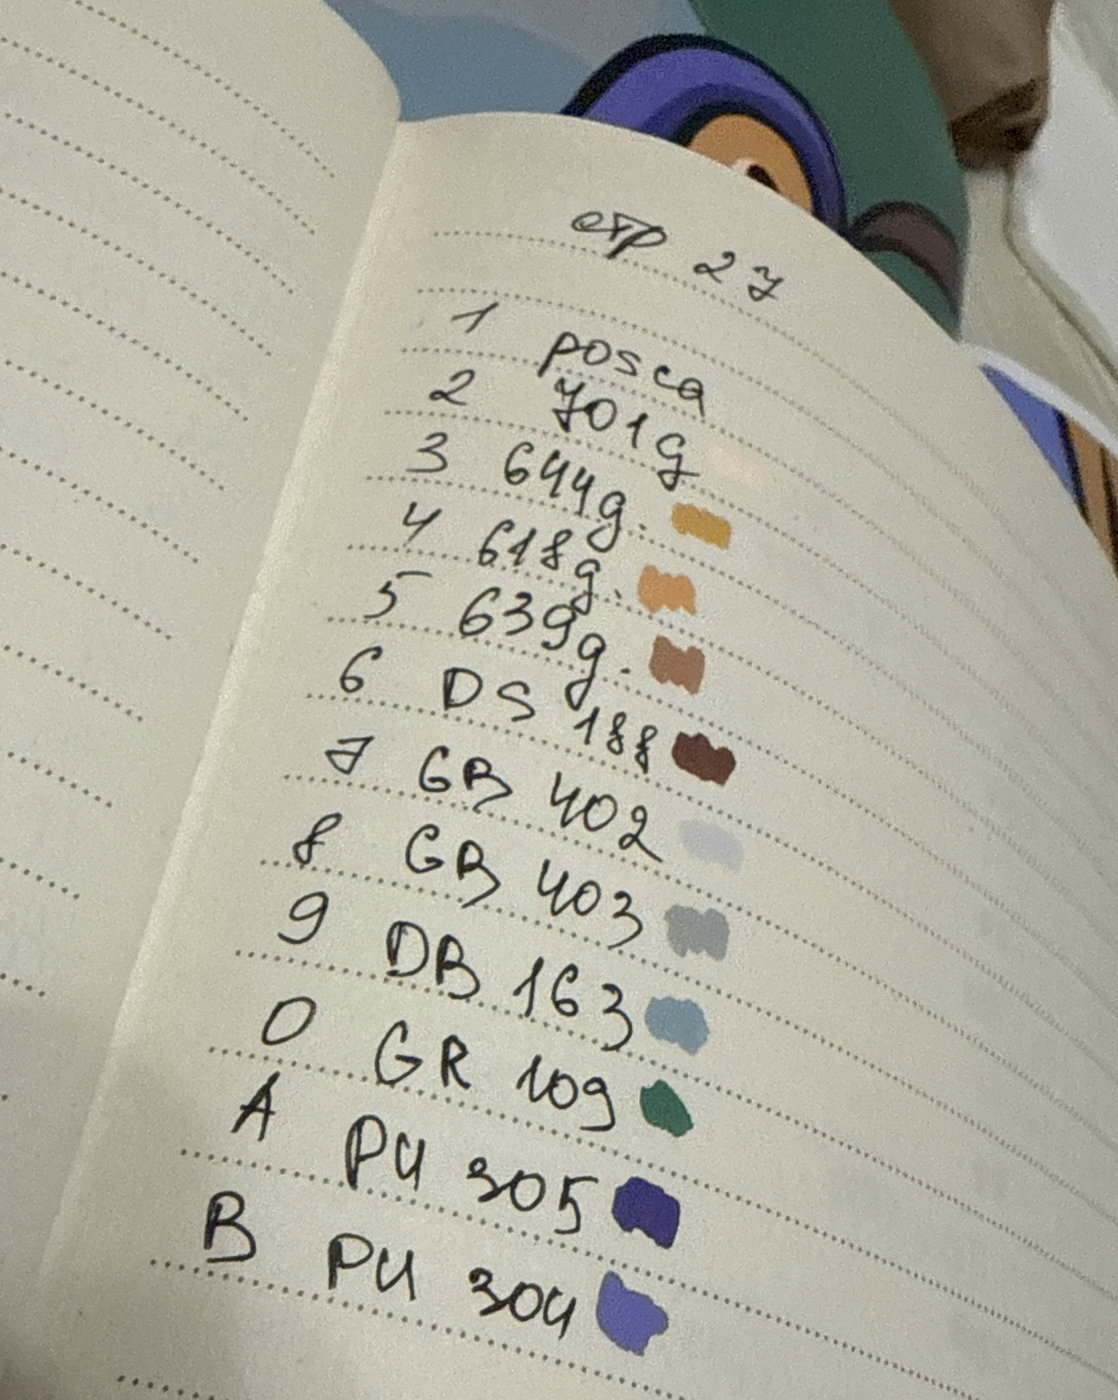 стр 27
1 posca
2 701g
3 644g.
4 618g.
5 639g.
6 DS 188
7 GB 402
8 GB 403
9 DB 163
0 GR 109
A PU 305
B PU 304